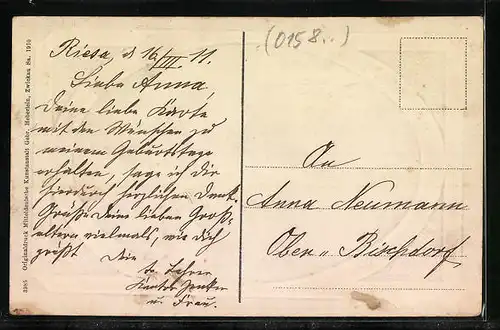 (0158..)
Riesa, d 16/III. 11.
Liebe Anna,
Deine liebe Karte
mit den Wünschen zu
meinem Geburtstage
erhalten, sage ich dir
hierdurch herzlichen Dank.
Grüße Deine lieben Groß-
eltern vielmals, wie dich
grüßt
Dein
Lehrer
Kantor
u. Frau.
An
Anna Neumann
Ober-Bischdorf
3385 Originaldruck Mitteldeutsche Kunstanstalt Gebr. Heberlein, Zwickau Sa. 1910